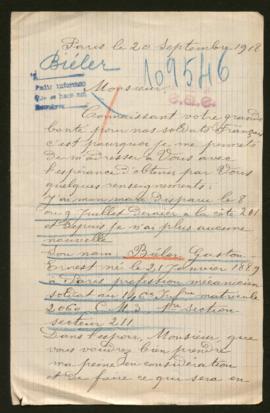 Paris le 20 Septembre 1918
Biéler
109546
Pedir informes
Que se hace una
Monsieur,
Connaissant votre grande
bonté pour nos soldats Français
c'est pourquoi je me permets
de m'adresser à Vous avec
l'espérance d'obtenir par Vous
quelques renseignements:
J'ai mon mari disparu le 8
ou 9 Juillet dernier à la côte 201
et depuis je n'ai plus aucune
nouvelle
Son nom Biéler Gaston
Ernest né le 21 Janvier 1889
à Paris profession mécanicien
soldat au Infrie matricule
2069 C. M. 3 1re Section
secteur 211
Dans l'espoir, Monsieur, que
vous voudrez bien prendre
ma peine en considération
et de faire ce qui sera en